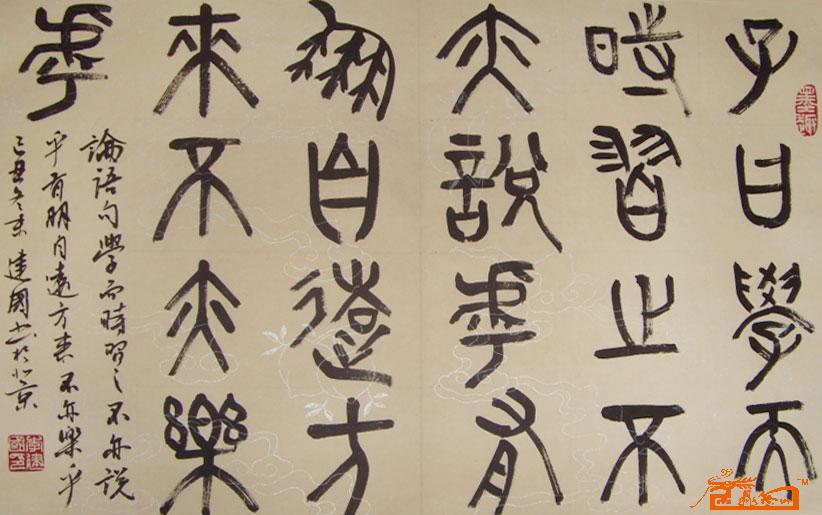 子曰學而
時習之不
亦說乎有
朋自遠方
來不亦樂
乎
論語句學而時習之不亦説
乎有朋自遠方来不亦樂乎
己丑冬末建國书於北京